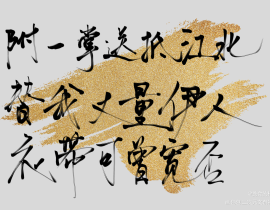 附一掌送抵江北
替我丈量伊人
衣带可曾宽否